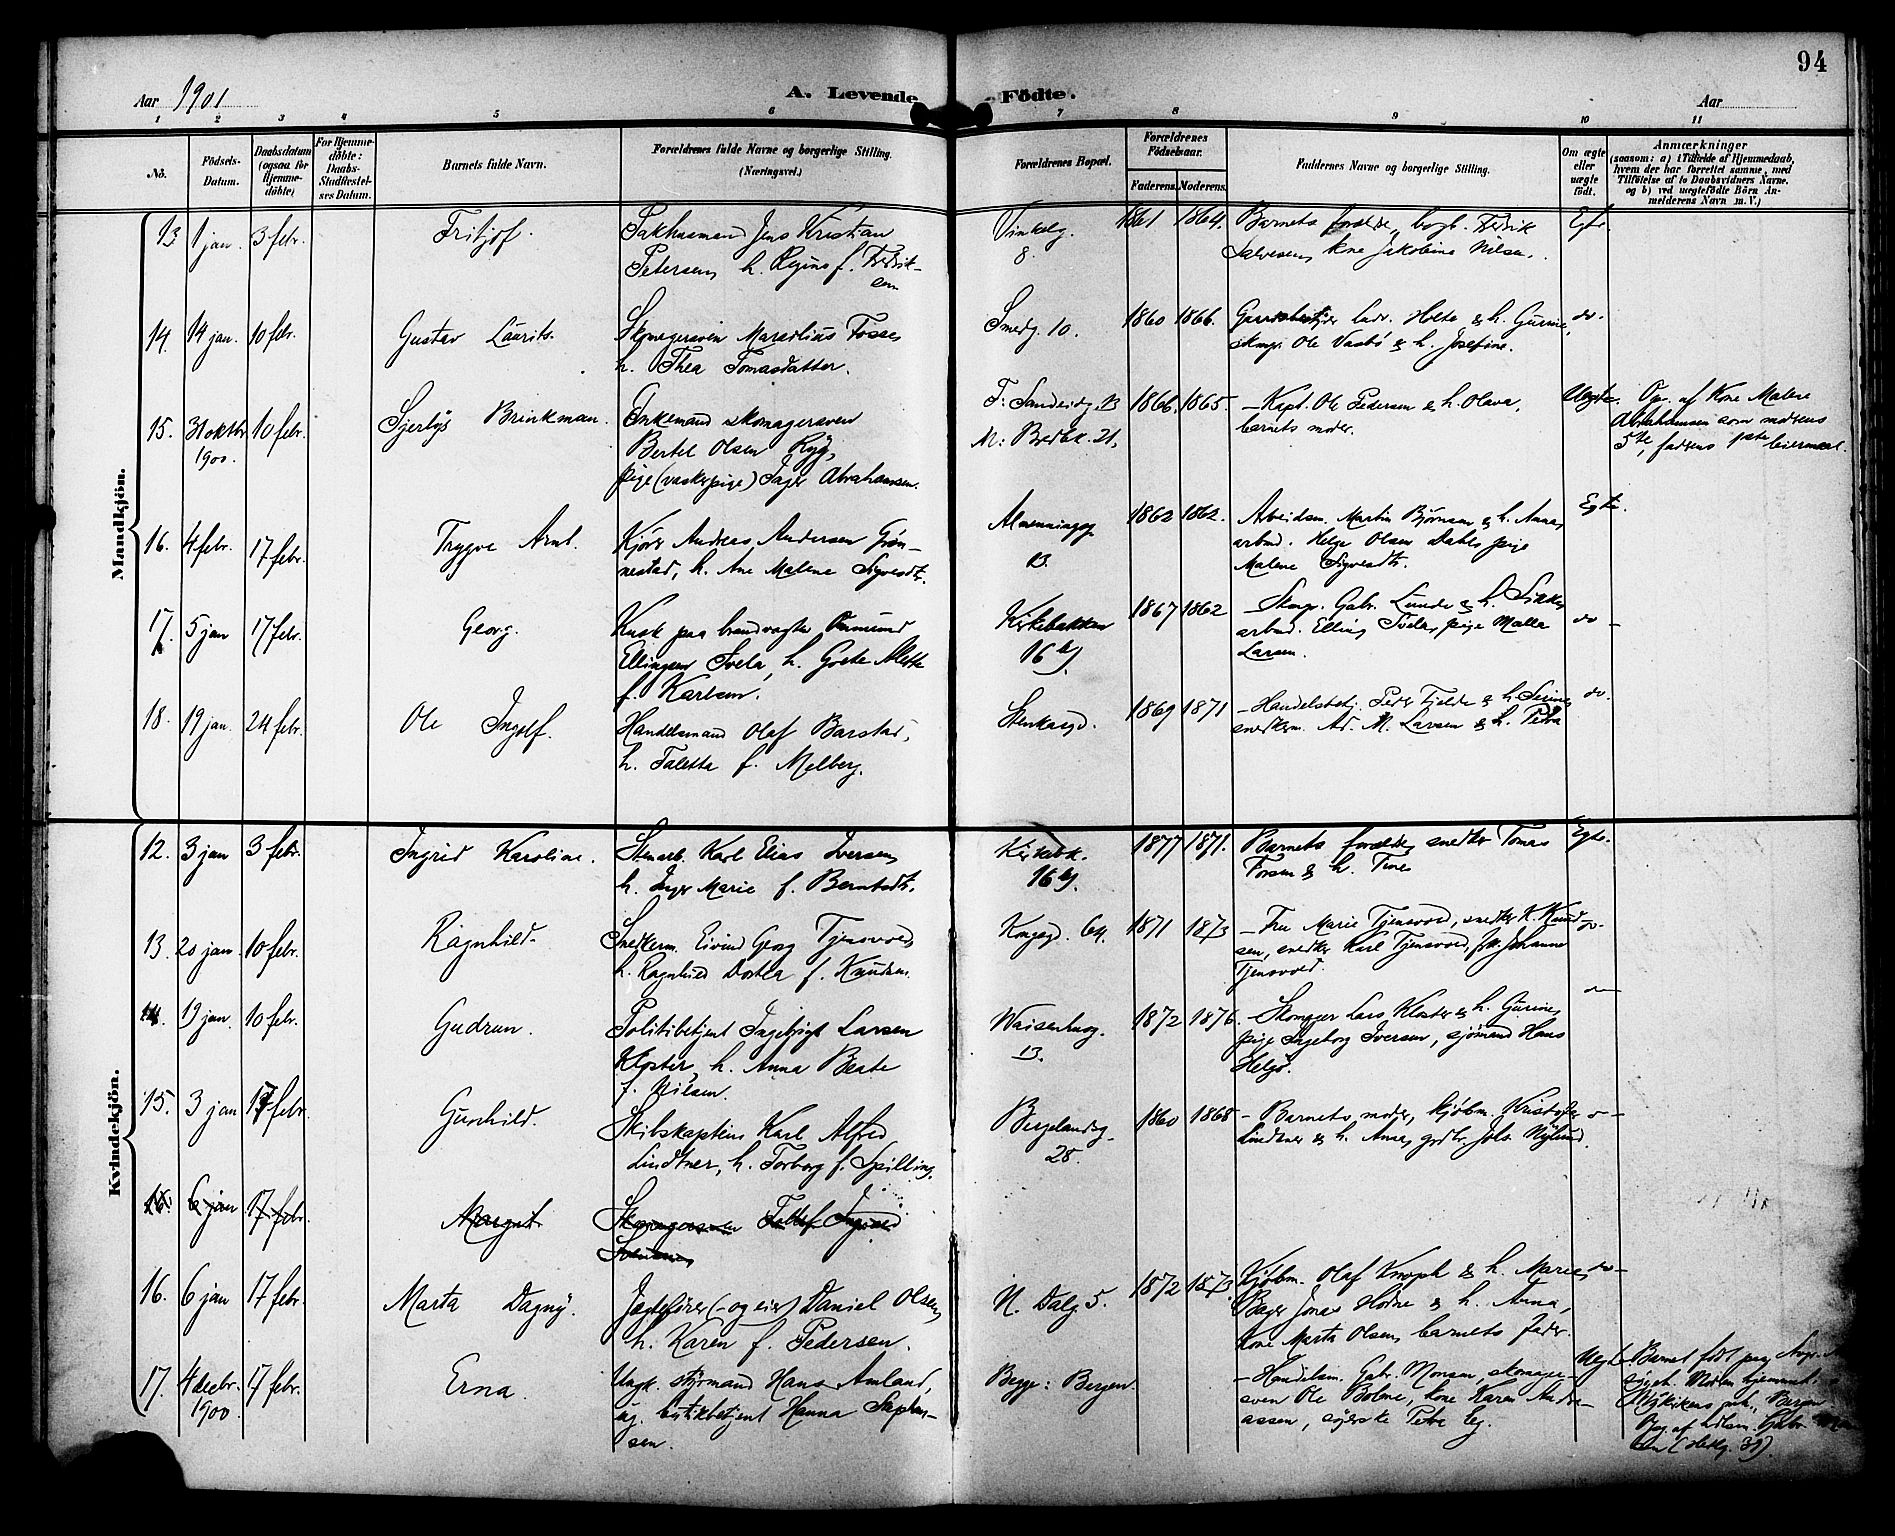 94
Aar 1901 A. Levende Födte. Aar
1 2 3 4 5 6 7 8 9 10 11
No. Födsels-Datum. Daabsdatum (ogsaa for Hjemme-döbte) For Hjemme-döbte: Daabs-Stadfæstel-ses Datum. Barnets fulde Navn. Forældrenes fulde Navne og borgerlige Stilling. (Næringsvei.) Forældrenes Bopæl. Forældrenes Födselsaar. Faderens. Moderens. Faddernes Navne og borgerlige Stilling. Om ægte eller uægte födt. Anmærkninger (saasom: a) i Tilfælde af Hjemmedaab, hvem der har forrettet samme, med Tilföielse af to Daabsvidners Navne, og b) ved uegtefödte Börn An-melderens Navn m. V.)
Mandkjön.
13 1 jan. 3 febr. Fritjof. Pakhusmand Jens Kristian
Petersen, h. Regine f. Fredrik-
sen
Vinkelg.
8.
1861 1864. Barnets forældre, bogb. Fredrik
Salvesen, kone Jakobine Nilsen.
Egte.
14. 14 jan. 10 febr. Gustav Laurits. Skomagersven Marselius Fosse,
h. Thea Tomasdatter.
Smedg. 10. 1860 1866. Holta & h. Gurine,
skomgr. Ole Vasbö & h. Josefine.
do.
15. 31 oktbr 1900. 10 febr. Brinkman. Enkemand skomagersven
Bertel Olsen Ryg,
pige (vaskerpige) Abrahamsen.
F: Sandeidg. 13
M: Bredbk. 21.
1866. 1865. – Kapt. Ole Pedersen & h. Olava,
barnets moder.
Uegte. Opg. af Kone Malene
Abrahamsen som moderens
5te, faderens 1ste leiermaal.
16. 4 febr. 17 febr. Trygve Arnt. Kjörer Anders Andersen Grön-
nestad, h. Ane Malene Sigvesdtr.
Almenningsg.
13.
1862 1862. Arbeidsm. Martin Björnsen & h. Anna,
arbmd. Helge Olsen Dahle, pige
Malene Sigvesdtr.
Egte.
17. 5 jan 17 febr. Georg. Kusk paa brandvagten Omund
Ellingsen Svela, h. Grete Mette
f. Karlsen.
Kirkebakken
16 b).
1867 1862 – Skomgr. Gabr. Lunde & h.
arbmd. Elling Svela, pige Malla
Larsen.
do –
18. 19 jan. 24 febr. Ole Ingolf. Handelsmand Olaf Barstad,
h. Taletta f. Melberg.
Stenkargd. 1869 1871 – Handelsbetj. Peder Tjelde & h.
snedkerm. Ad. M. Larsen & h. Petra
do.
Kvindekjön.
12. 3 jan 3 febr. Ingrid Karoline. Stenarb. Karl Elias Iversen,
h. Inger Marie f. Berntsdtr.
Kirkebk.
16 b).
1877 1871. Barnets forældre, snedker Tomas
& h. Tine
Egte.
13. 20 jan 10 febr. Ragnhild. Snedkerm. Eivind Georg Tjensvold,
h. Ragnhild Dortea f. Knudsen.
Kongsgd. 64. 1871 1873 – Fru Marie Tjensvold, snedker K. Knud-
sen, snedker Karl Tjensvold, frk. Johanne
Tjensvold.
do.
14. 19 jan. 10 febr. Gudrun. Politibetjent Ingebrigt Larsen
Kloster, h. Anna Beate
f. Nilsen.
Waisenhusg.
13.
1872 1876. – Skomager Lars Kloster & h. Gurine,
pige Ingeborg Iversen, sjömand Hans
Helgö.
do
15. 3 jan 17 febr. Gunhild. Skibskaptein Karl Alfred
Lindtner, h. Torborg f. Spilling.
Bergelandsg.
28.
1860 1868 – Barnets moder, kjöbm. Kristofer
Lindtner & h. Anna, grdbr. Johs. Nylund.
do –
16. 6 jan 17 febr. Margit Skomagersven Ingvald
16. 6 jan 17 febr. Marta Dagny. Jagtefører (– og eier) Daniel Olsen,
h. Karen f. Pedersen.
N. Dalg. 5. 1872 1873. Kjöbm. Olaf Knoph & h. Marie,
Bager Jonas Hodne & h. Anna,
kone Marta Olsen, barnets fader.
do –
17. 4 decbr. 1900 17 febr. Erna. Ungk. styrmand Hans Amland,
ug. butikbetjent Hanna Stephan-
sen.
Begge: Bergen. – Handelsm. Gabr. Monsen, skomager-
sven Ole kone Karen Andre-
assen, syerske Petra Eeg.
Uegte Barnet födt paa
sygeh. Moder hjemmeh.
Nykirkens prh., Bergen
Opg. af hdlsm. Gabr.
(Hetlg. 31).